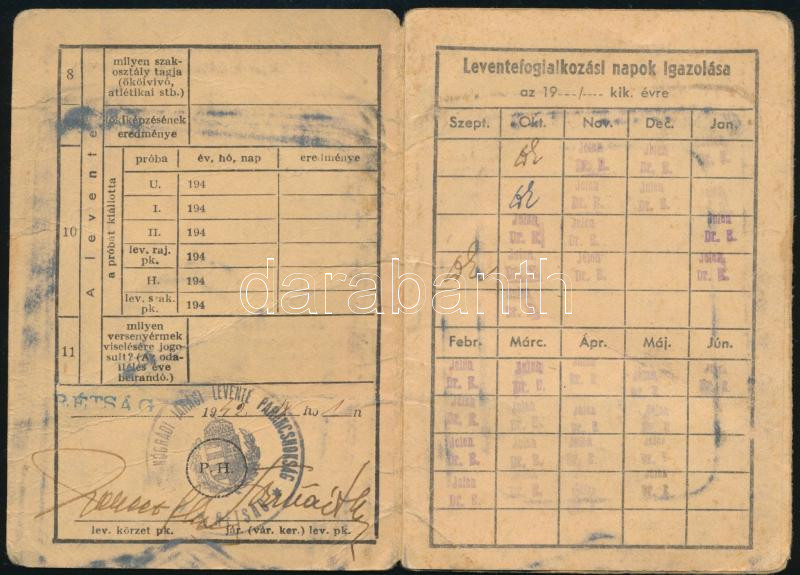 8
milyen szak-
osztály tagja
(ökölvívó,
atlétikai stb.)
lőkiképzésének
eredménye
A levente
10
a próbát kiállotta
próba év, hó, nap eredménye
U. 194
I. 194
II. 194
lev. raj. pk. 194
H. 194
lev. szak. pk. 194
11
milyen
versenyérmek
viselésére jogo
sult? (Az oda-
ítélés éve
beírandó.)
RÉTSÁG 1942 hó 1 n
NÓGRÁDI JÁRÁSI LEVENTE PARANCSNOKSÁG
RÉTSÁG
P. H.
lev. körzet pk. jár. (vár. ker.) lev. pk.
Leventefoglalkozási napok Igazolása
az 19---/---- kik. évre
Szept. Okt. Nov. Dec. Jan.
Jelen Jelen Jelen
Dr. B. Dr. B. Dr. B.
Jelen Jelen
Dr. B. Dr. B.
Jelen Jelen Jelen
Dr. B. Dr. B. Dr. B.
Jelen Jelen Jelen
Dr. B. Dr. B. Dr. B.
Febr. Márc. Ápr. Máj. Jún.
Jelen Jelen Jelen Jelen
Dr. B. Dr. B. Dr. B. Dr. B.
Jelen Jelen Jelen Jelen
Dr. B. Dr. B. Dr. B. Dr. B.
Jelen Jelen Jelen Jelen
Dr. B. Dr. B. Dr. B. Dr. B.
Jelen Jelen Jelen
Dr. B. Dr. B. Dr. B.
darabanth